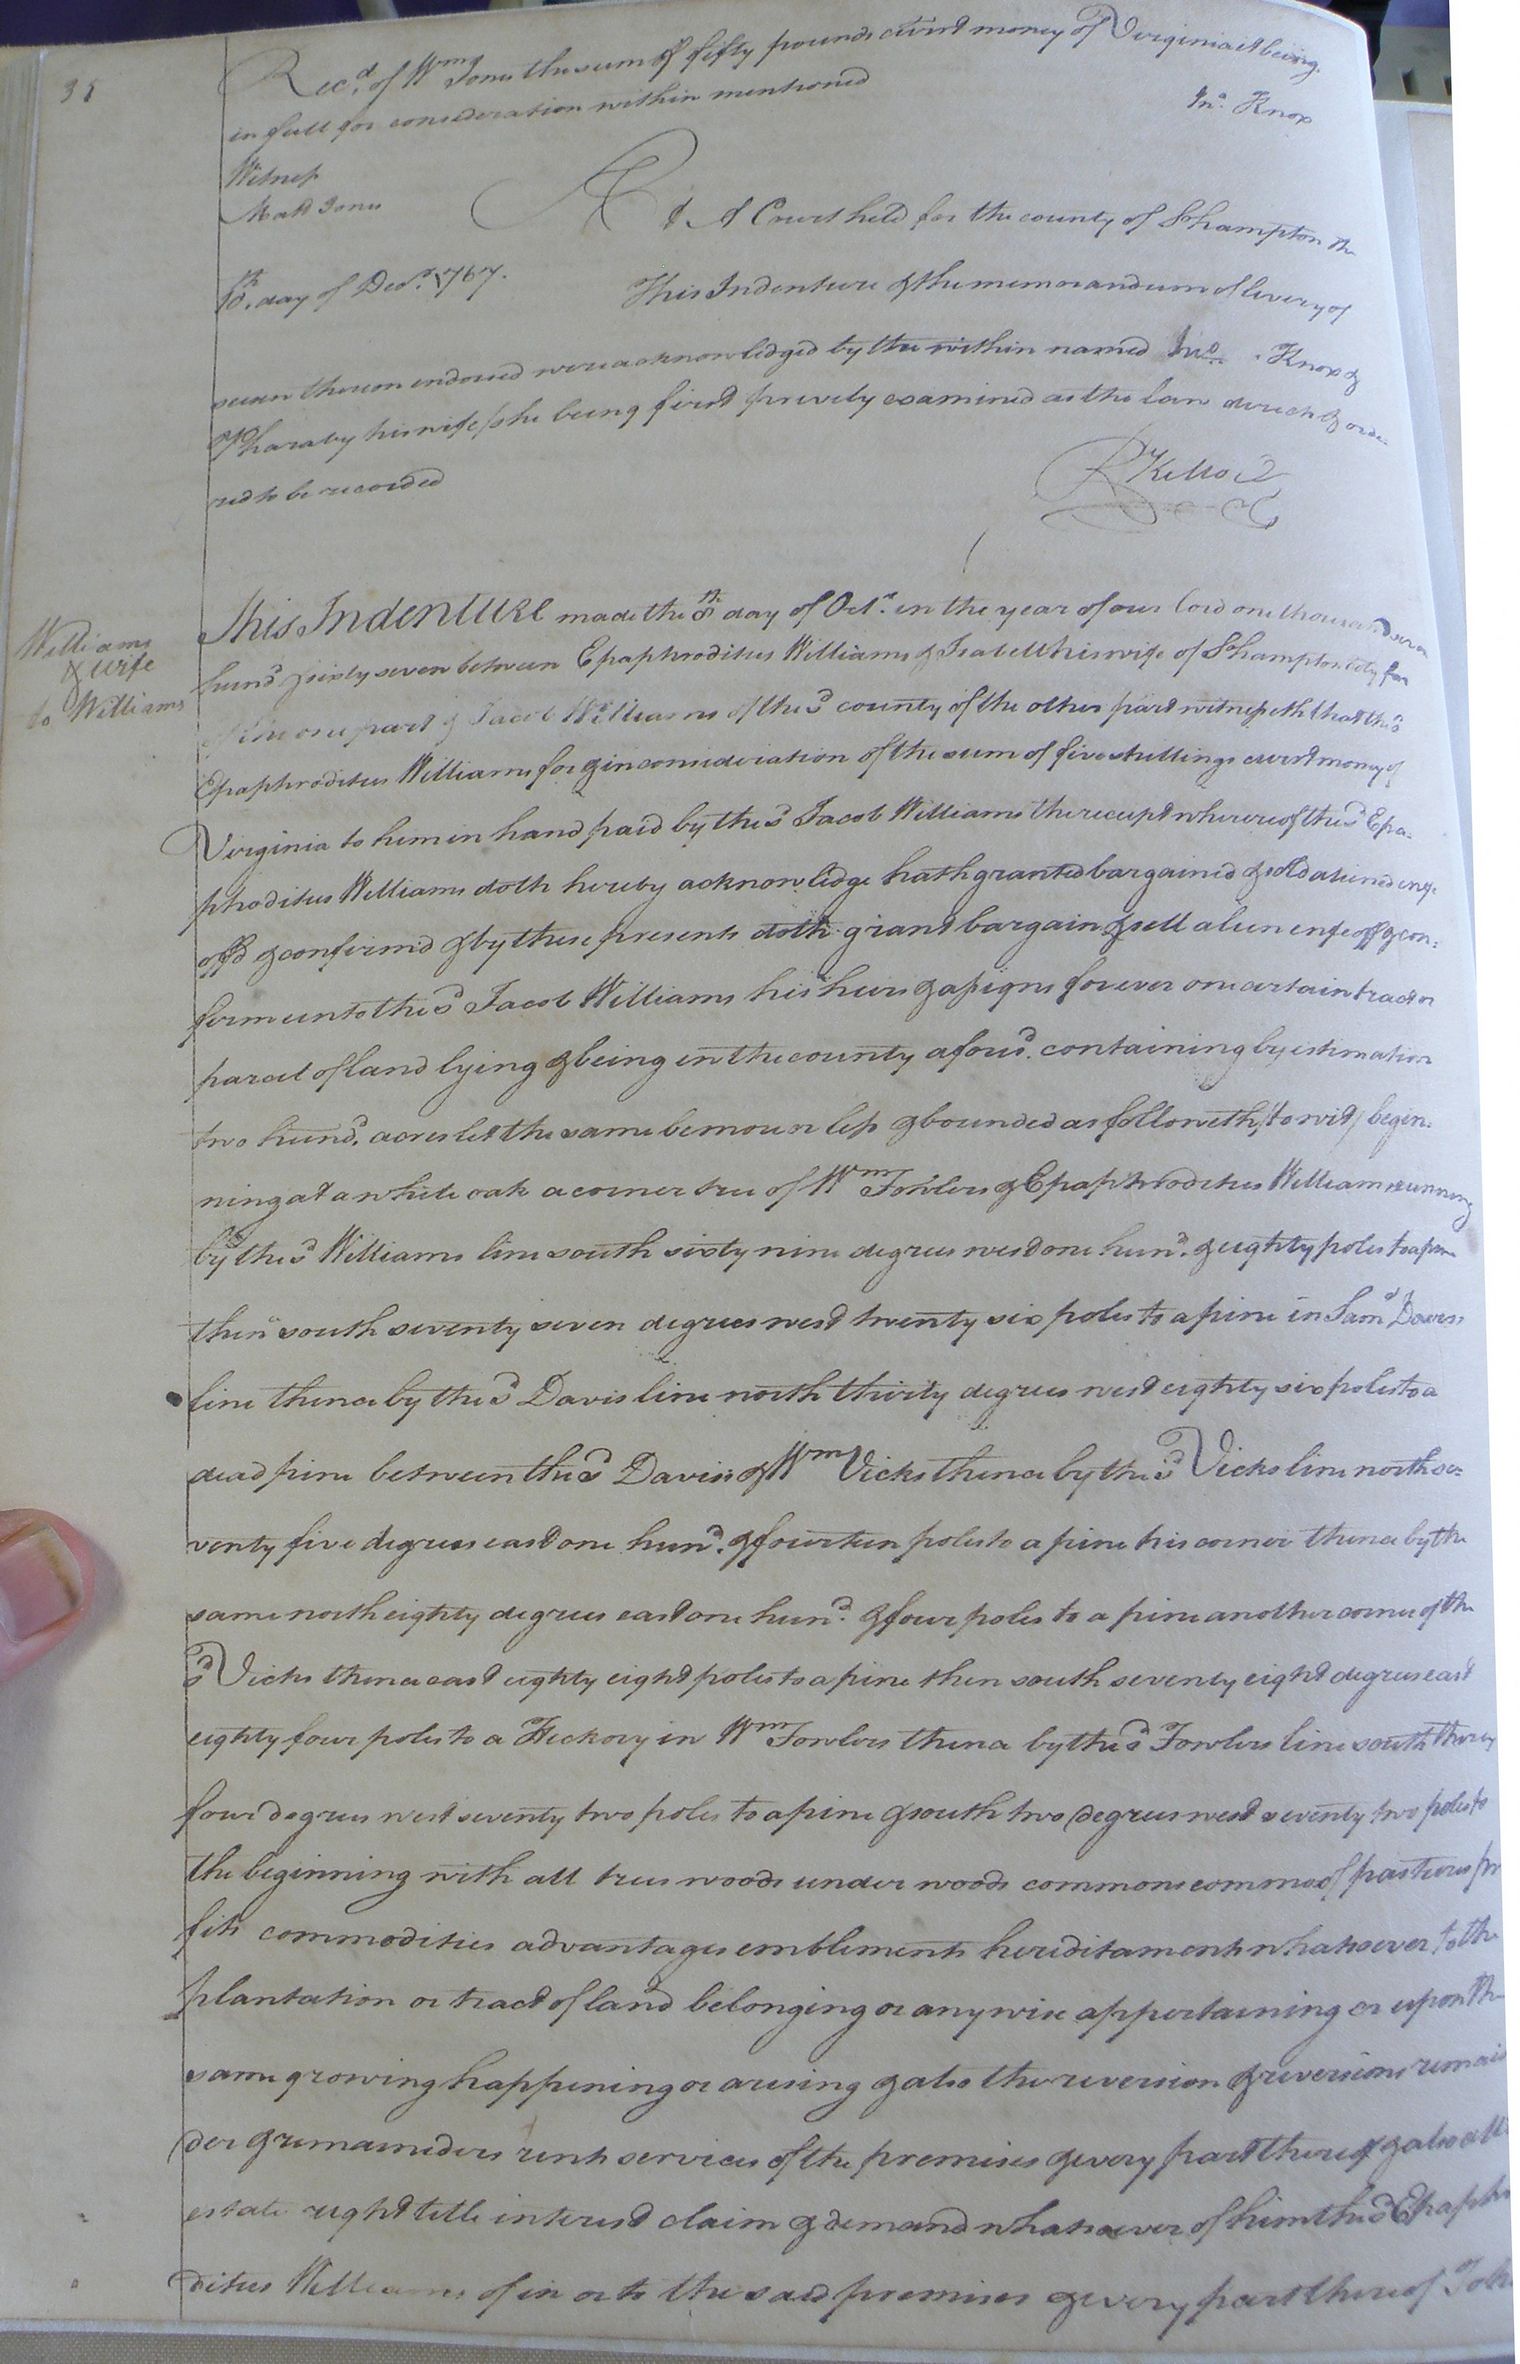 38
Recd. of Wm Jones the sum of fifty pounds curt money of Virginia it being
in full for consideration within mentioned
Jno. Knox
Witness
Matt Jones
At A Court held for the county of Sohampton the
10th. day of Decr. 1767.
This Indenture & the memorandum of livery of
seizen thereon endorsed were acknowledged by the within named Jno. Knox &
Pharaby his wife she being first privily examined as the law directs & orde-
red to be recorded
Ry Kello C
Williams
& wife
to Williams
This Indenture made the 8th day of Octr. in the year of our lord one thousand seven
hund. sixty seven between Epaphroditus Williams & Isabell his wife of Sohampton coty for
of the one part & Jacob Williams of the sd county of the other part witnesseth that the sd
Epaphroditus Williams for & in consideration of the sum of five shillings curt money of
Virginia to him in hand paid by the sd Jacob Williams the receipt whereof the sd Epa-
phroditus Williams doth hereby acknowledge hath granted bargained & sold aliened enfe
offd & confirmd & by these presents doth grant bargain & sell alien enfeoff & con:
firm unto the sd Jacob Williams his heirs & assigns forever one certain tract or
parcel of land lying & being in the county aforsd. containing by estimation
two hund. acres let the same be more or less & bounded as followeth (to wit) begin:
ning at a white oak a corner tree of Wm Fowlers & Epaphroditus Williams running
by the sd Williams line south sixty nine degrees west one hund. & eighty poles to a pine
then south seventy seven degrees west twenty six poles to a pine in Saml Daviss
line thence by the sd Davis line north thirty degrees west eighty six poles to a
dead pine between the sd Davis & Wm Vicks thence by the sd Vicks line north se-
venty five degrees east one hund. & fourteen poles to a pine his corner thence by the
same north eighty degrees east one hund. & four poles to a pine another corner of the
sd Vicks thence east eighty eight poles to a pine then south seventy eight degrees east
eighty four poles to a Hickory in Wm Fowlers thence by the sd Fowlers line south thirty
four degrees west seventy two poles to a pine & south two degrees west seventy two poles to
the beginning with all trees woods under woods commons common of pastures pro
fits commodities advantages emblements hereditaments whatsoever to the
plantation or tract of land belonging or any wise appertaining or upon the
same growing happening or arising & also the reversion & reversions remain
der & remainders rents services of the premises & every part thereof & also all
estate right title interest claim & demand whatsoever of him the sd Epaphro
ditus Williams of in or to the said premises & every part thereof To